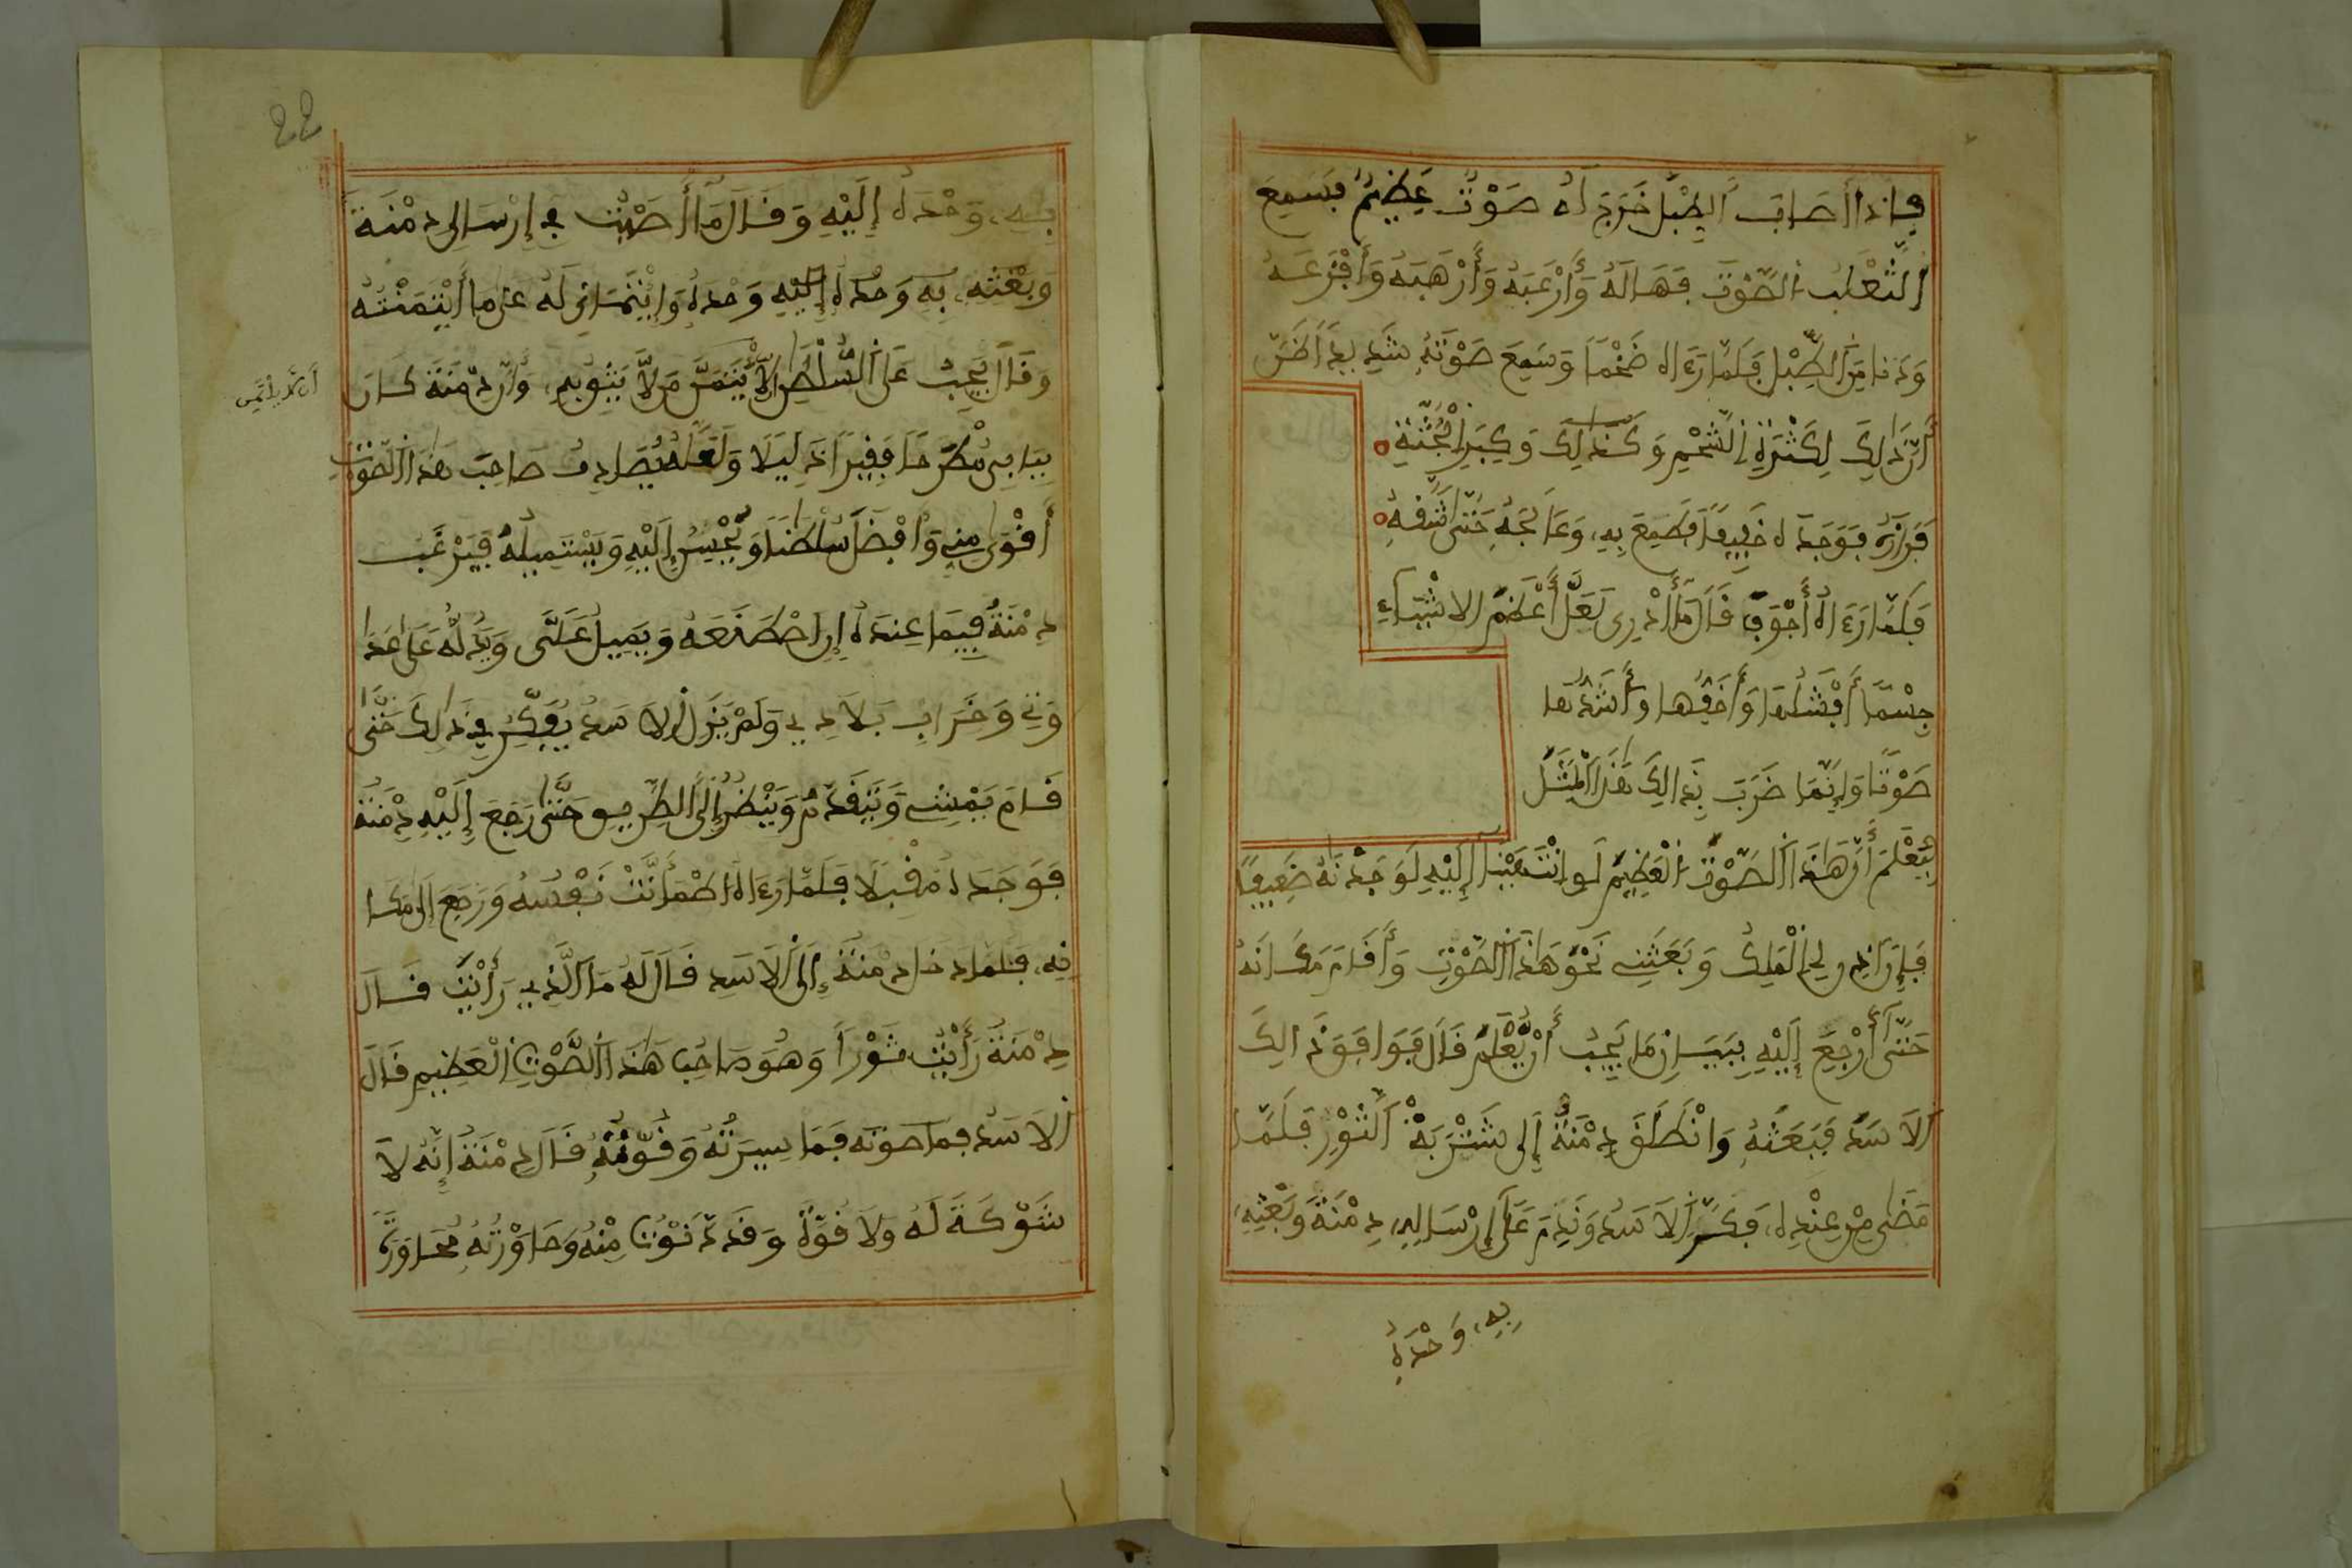 فإذا أصاب الطبل خرج له صوت عظيم فسمع
الثعلب الصوت فهاله وأرعبه وأرهبه وأفزعه
ودنا من الطبل فلما رءاه ضخما وسمع صوته شديد اظن
أن ذالك لكثرة الشحم وكذالك وكبر الجثة
فوجده خفيفا فطمع به وعالجه حتى شقه
فلما رءاه أجوف قال ما أدرى لعل أعظم الاشياء
جسما أفشلها وأخفها وأشدها
صوتا وإنما ضرب بذالك هذا المثل
ليعلم أن هاذا الصوت العظيم لو انتهينا إليه لوجدنه ضعيفا
فإن اذن لي الملك وبعثني نحو هاذا الصوت وأقام مكانه
حتى أرجع إليه ببيان ما يحب أن يعلم قال فوافق ذالك
الاسد فبعثه وانطلق دمنة إلى شتربة الثور فلما
مضى من عنده فكر الاسد وندم على إرساله دمنة وبعثه
به وحده
22
به وحده إليه وقال ما أصبت في إرسالى دمنة
وبعثه به وحده إليه وحده وايتماني له على ما ايتمنته
وقال يجب على السلطن ألا يأتمن من لا يثق به وأن دمنة كان
ببابى مطرحا فقيرا ذليلا ولعله يصادف صاحب هذا الصوت
أقوى مني وأفضل سلطنا ويحبس إليه ويستميله فيرغب
دمنة فيما عنده إن اصطنعه ويميل علي ويدله على عدا
وتي وخراب بلادي ولم يزل الاسد يفكر في ذالك حتى
قام يمشي ويتقدم وينظر إلى الطريق حتى رجع إليه دمنة
فوجده مقبلا فلما رءاه اطمأنت نفسه ورجع الى مكا
نه فلما دخل دمنة إلى الاسد قال له ما الذي رأيت قال
دمنة رأيت ثورا وهو صاحب هاذا الصوت العظيم قال
الاسد فما صوته فما سيرته وقوته قال دمنة إنه لا
شوكة له ولا قوة وقد دنوت منه وحاورته محاورة